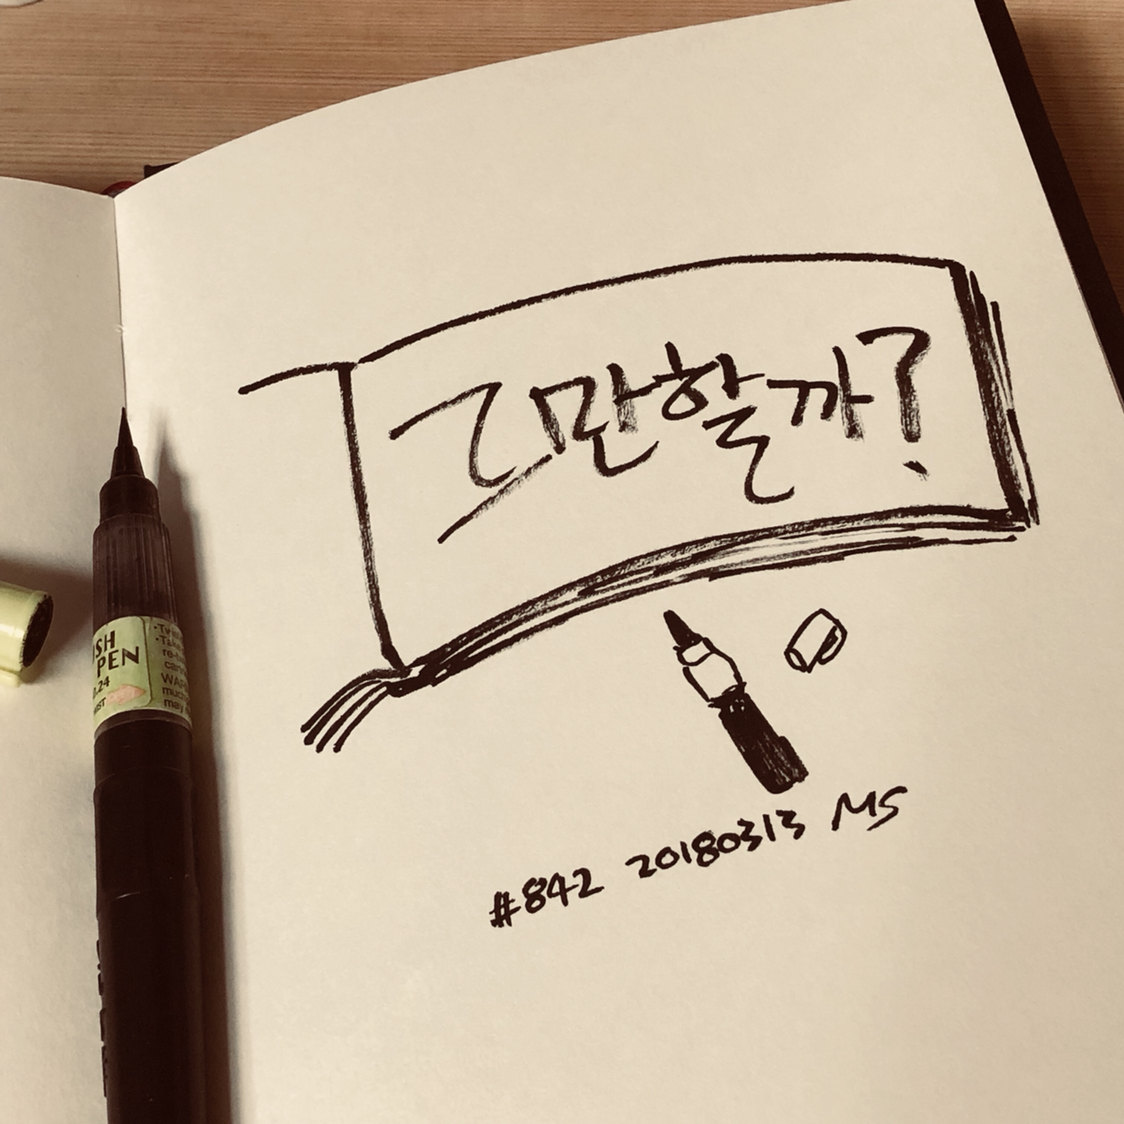 그만할까?
#842 20180313 MS
SH
PEN